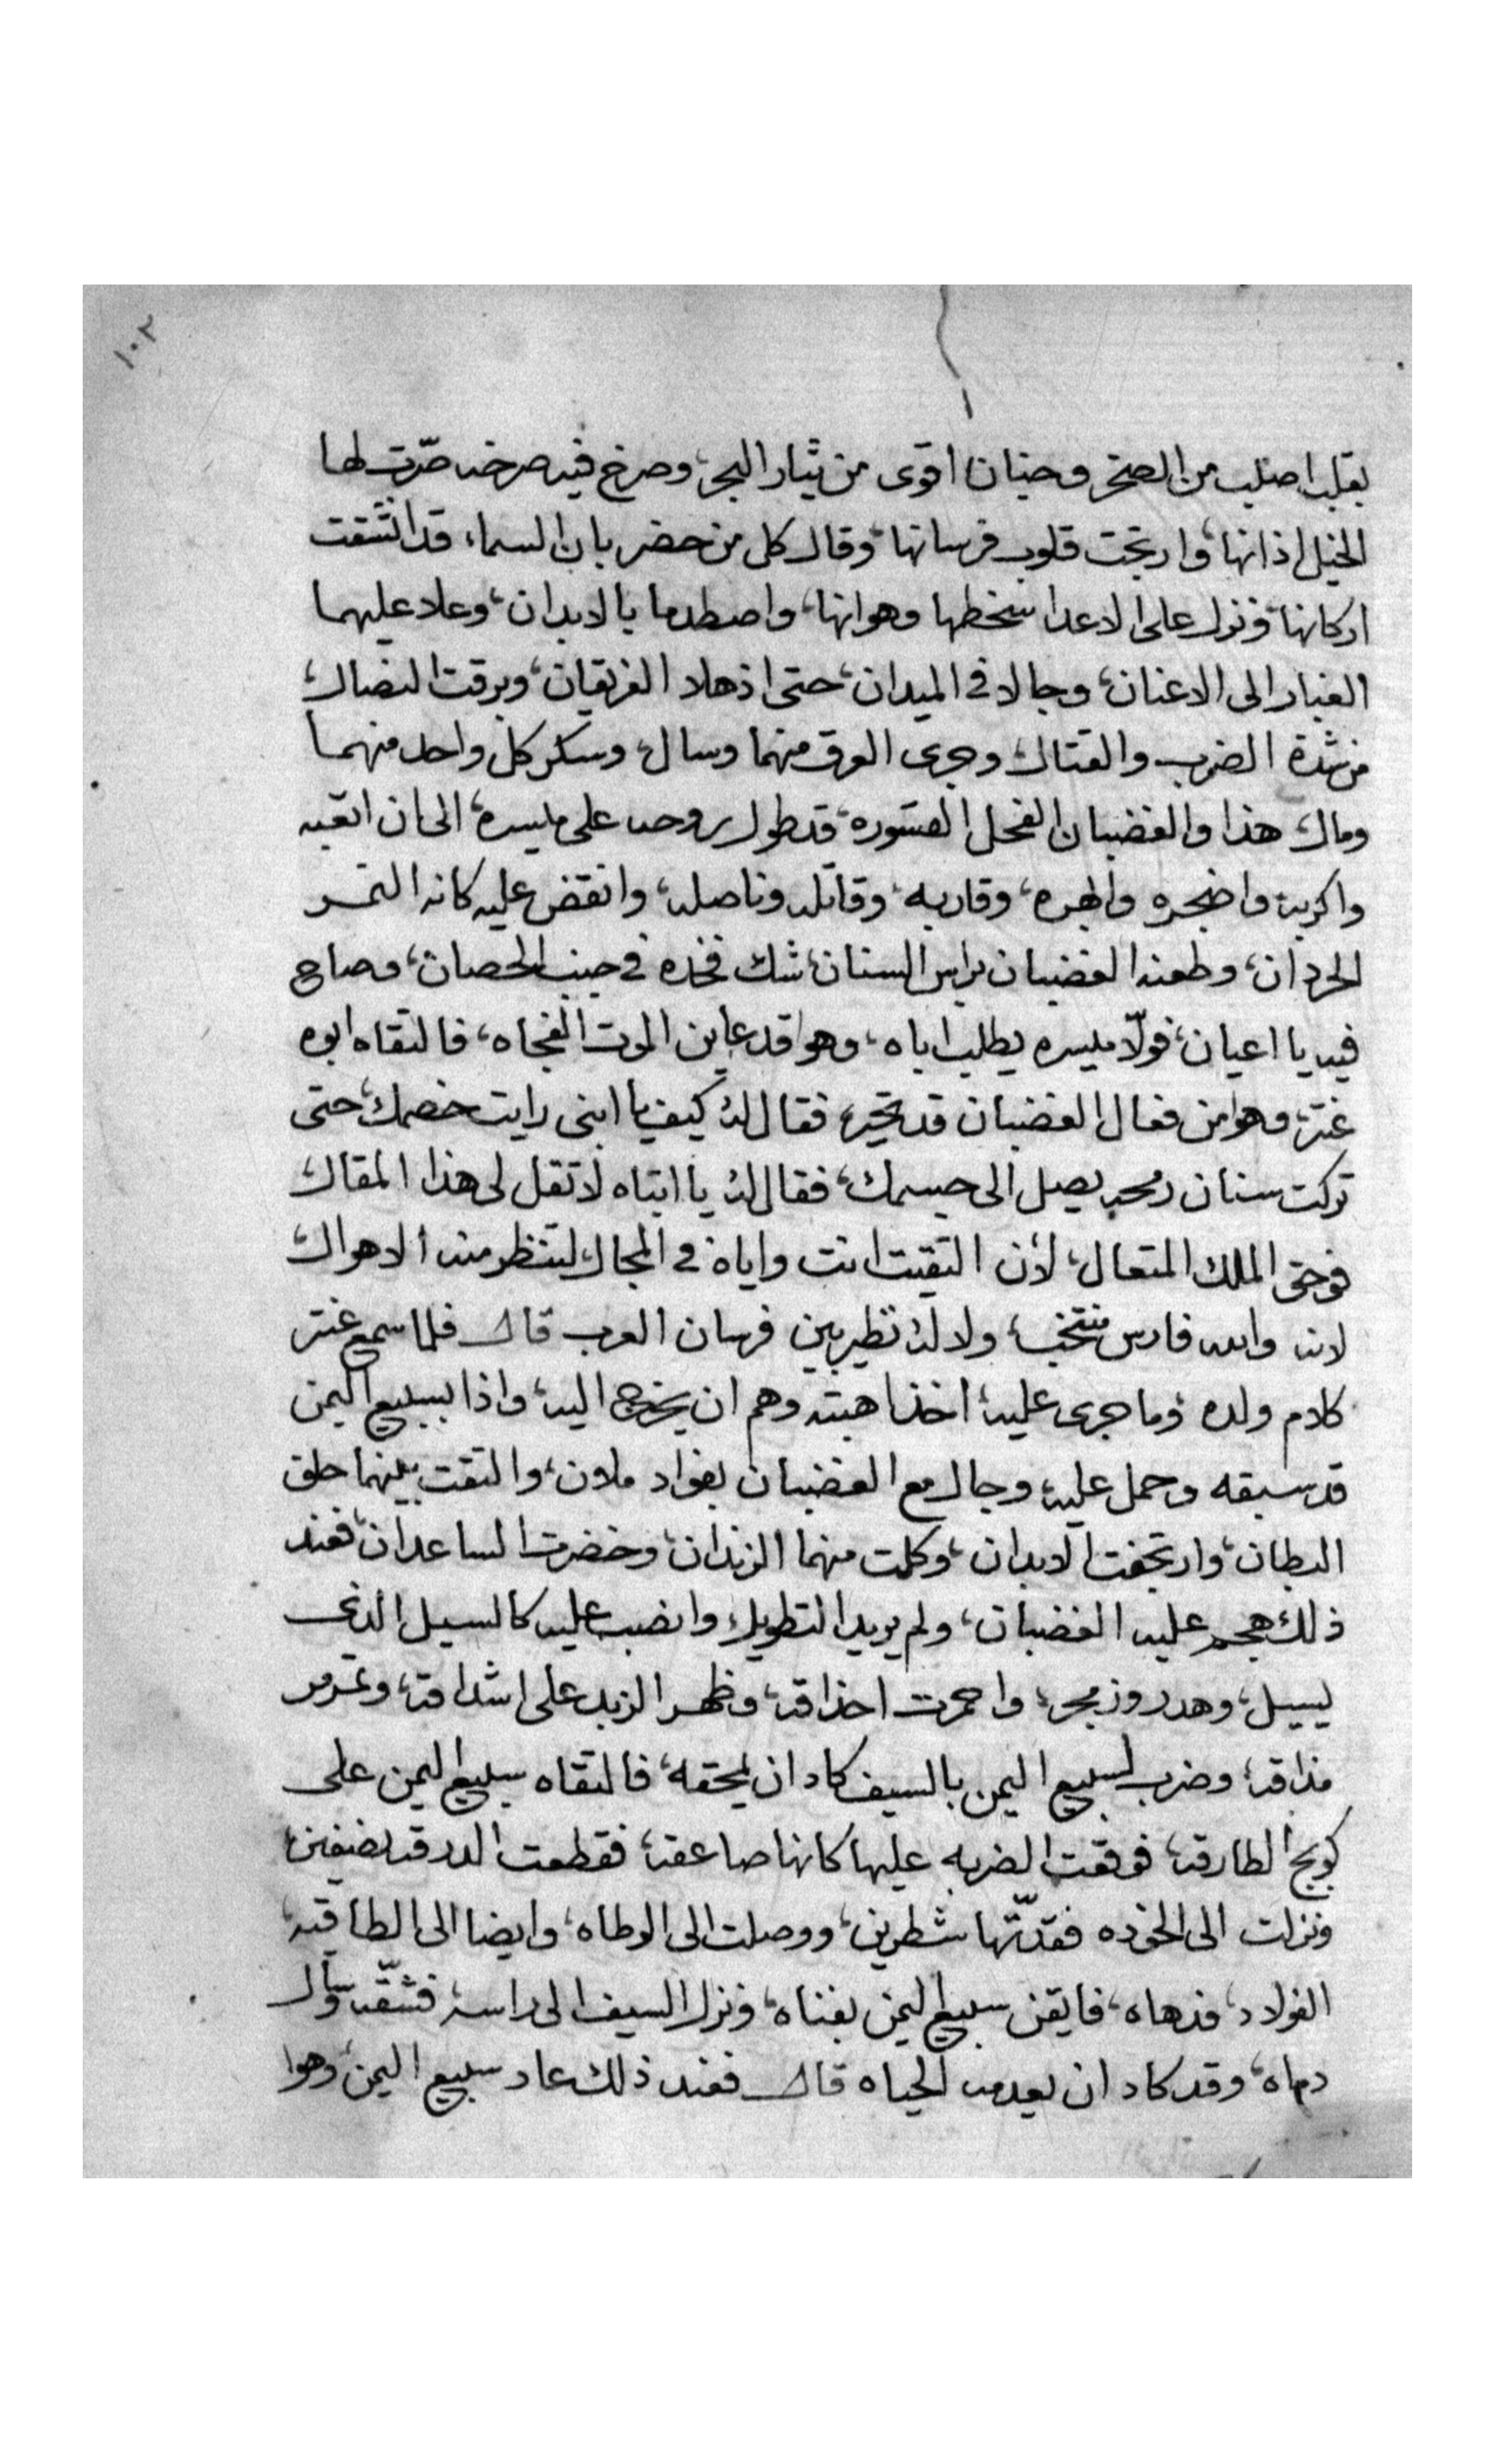 ١٠٢
بقلب اصلب من الصخر وجنان اقوى من تيار البحر، وصرخ فيه صرخه صرّت لها
الخيل اذانها، وارتجت قلوب فرسانها، وقال كل من حضر بان السماء قد انشقت
اركانها، ونزل على الاعدا سخطها وهوانها، واصطدما بالابدان، وعلا عليهما
الغبار الى الاعنان، وجالا في الميدان، حتى اذهلا الفريقان، وبرقت النصال،
من شدة الضرب والقتال، وجرى العرق منهما وسال، وسكر كل واحد منهما
ومال، هذا والغضبان الفحل القسوره، قد طول روحه على ميسره، الى ان اتعبه
واكربه، واضجره وابهره، وقاربه، وقاتله وناصله، وانقض عليه كانه النمر
الحردان، وطعنه الغضبان براس السنان، شك فخده في جنب الحصان، وصاح
فيه يا اعيان، فولّا ميسره يطلب اباه، وهوا قد عاين الموت الفجاه، فالتقاه ابوه
عنتر، وهوا من فعال الغضبان قد تحير، فقال له كيف يا ابنى رايت خصمك، حتى
تركت سنان رمحه يصل الى جسمك، فقال له يا ابتاه لا تقل لى هذا المقال،
فوحق الملك المتعال، لأن التقيت انت واياه في المجال، لتنظر منه الاهوال،
لانه والله فارس منتخب، ولا له نظير بين فرسان العرب قال فلما سمع عنتر
كلام ولده وما جرى عليه، اخذ اهبته وهم ان يخرج اليه، واذا بسبيع اليمن
قد سبقه وحمل عليه، وجال مع الغضبان بفواد ملان، والتقت بينهما حلق
البطان، وارتجفت الابدان، وكلت منهما الزندان، وخضرت الساعدان، فعند
ذلك هجم عليه الغضبان، ولم يريد التطويل، وانصب عليه كالسيل الذى
يسيل، وهدر وزمجر، واحمرت احداقه، وظهر الزبد على اشداقه، وتمرمر
مذاقه، وضرب لسبيع اليمن بالسيف كاد ان يمحقه، فالتقاه سبيع اليمن على
الطارقه، فوقعت الضربه عليها كانها صاعقه، فقطعت الدرقه نصفين،
ونزلت الى الخوده فقدّتها شطرين، ووصلت الى الوطاه، وايضا الى الطاقيه
الفولاد، فدهاه، فايقن سبيع اليمن بفناه، ونزل السيف الى راسه، فشقّه وسال
دماه، وقد كاد ان يعدمه الحياه قال فعند ذلك عاد سبيع اليمن، وهوا